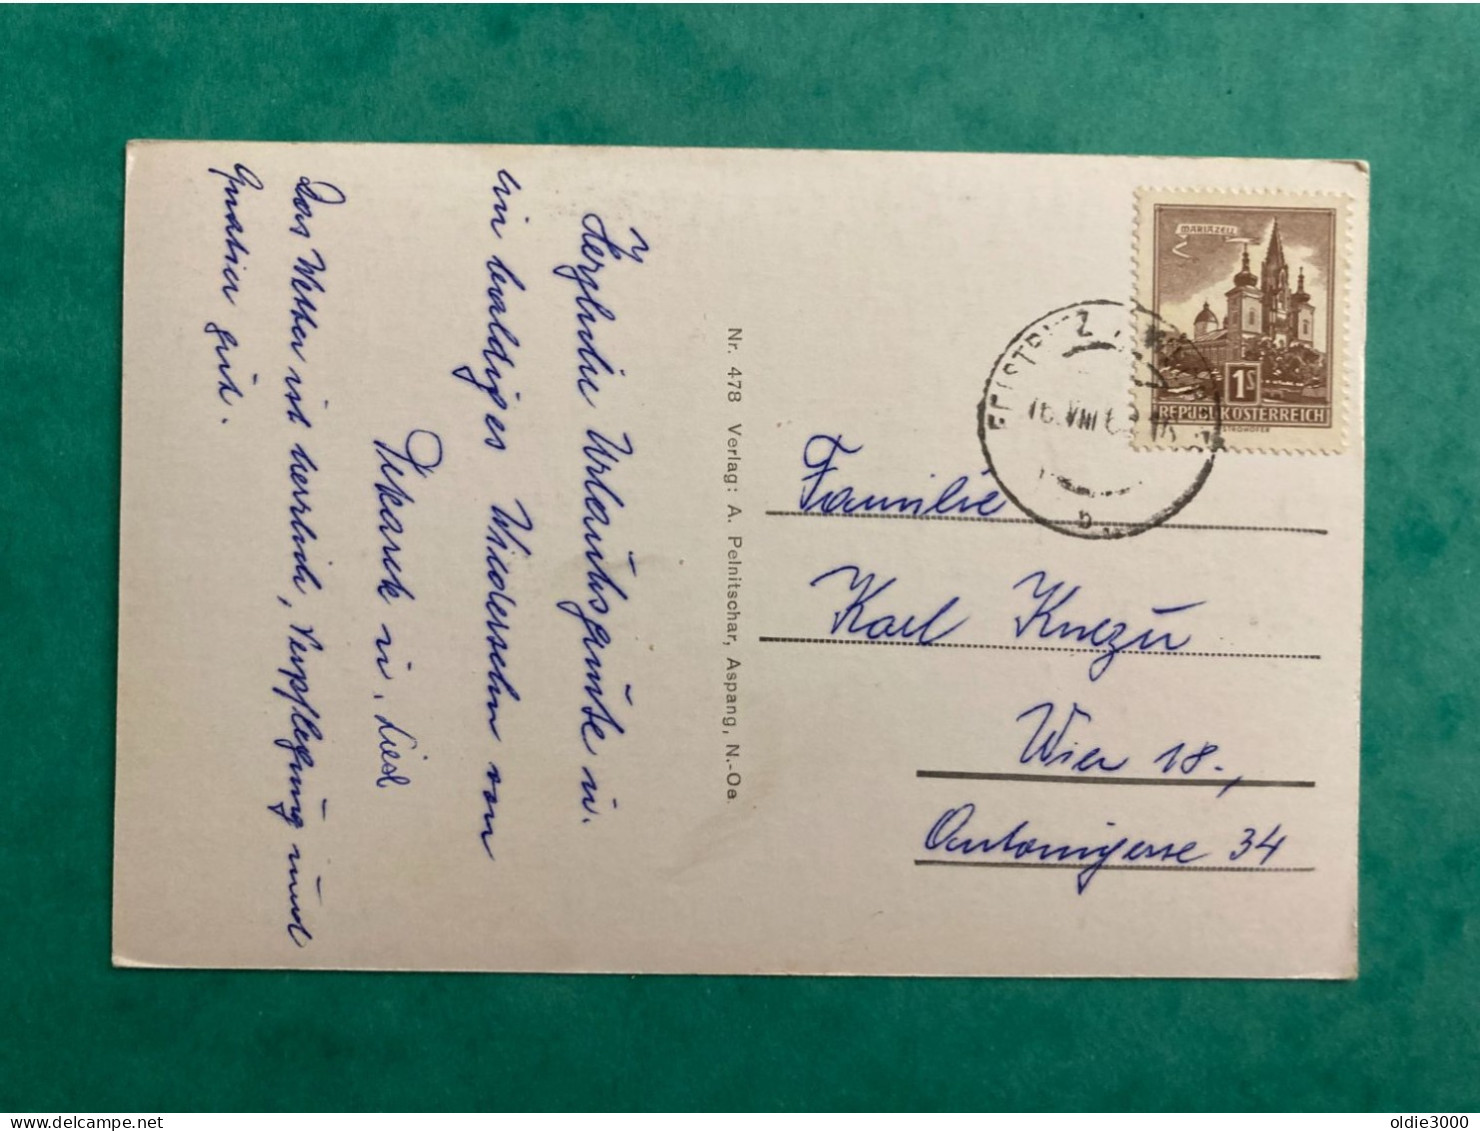 Herzliche Urlaubsgrüße u.
ein baldiges Wiedersehn von
u. Liesl
Das Wetter ist herrlich, Verpflegung und
Quartier gut.
Nr. 478 Verlag: A. Pelnitschar, Aspang, N.-Oe.
MARIAZELL
1S
REPUBLIK ÖSTERREICH
FEISTRITZ
16. VIII 6
b
Familie
Karl
Wien 18.,
Antonigasse 34
oldie3000